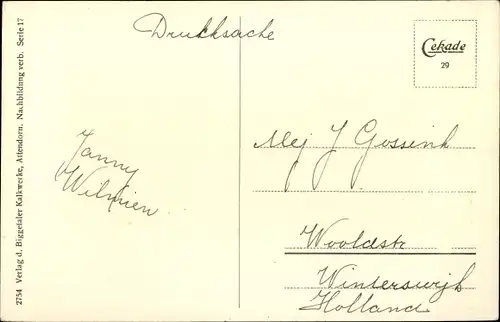 Drucksache
Cekade
29
2754 Verlag d. Biggetaler Kalkwerke, Attendorn. Nachbildung verb. Serie 17
Janny
Wilmien
Mej J Gossink
Wooldstr
Winterswijk
Holland